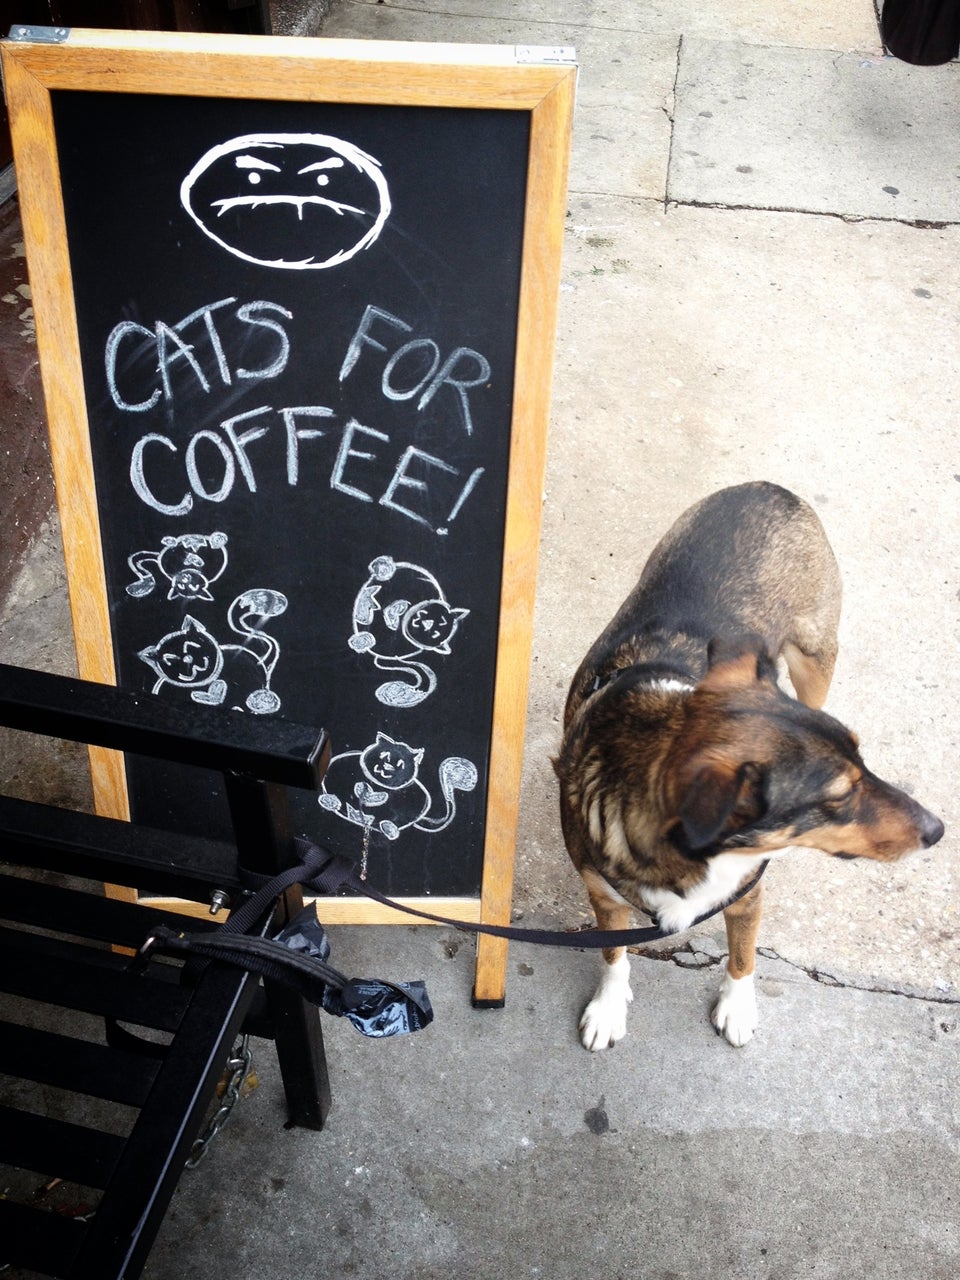 CATS FOR
COFFEE!